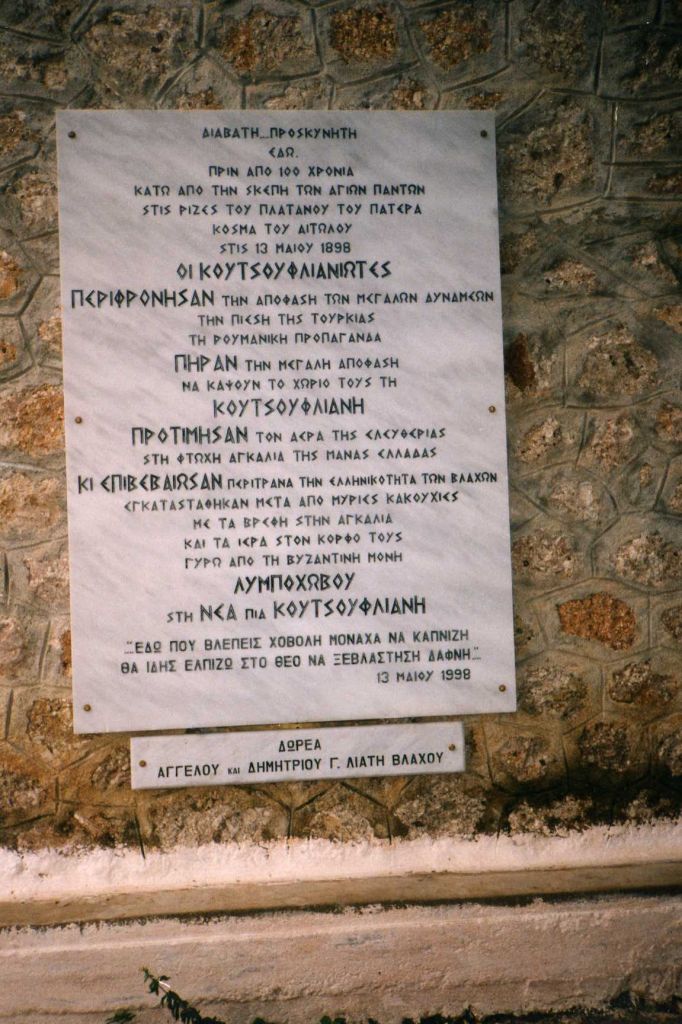 ΔΙΑΒΑΤΗ...ΠΡΟΣΚΥΝΗΤΗ
ΕΔΩ.
ΠΡΙΝ ΑΠΟ 100 ΧΡΟΝΙΑ
ΚΑΤΩ ΑΠΟ ΤΗΝ ΣΚΕΠΗ ΤΩΝ ΑΓΙΩΝ ΠΑΝΤΩΝ
ΣΤΙΣ ΡΙΖΕΣ ΤΟΥ ΠΛΑΤΑΝΟΥ ΤΟΥ ΠΑΤΕΡΑ
ΚΟΣΜΑ ΤΟΥ ΑΙΤΩΛΟΥ
ΣΤΙΣ 13 ΜΑΙΟΥ 1898
ΟΙ ΚΟΥΤΣΟΥΦΛΙΑΝΙΩΤΕΣ
ΠΕΡΙΦΡΟΝΗΣΑΝ ΤΗΝ ΑΠΟΦΑΣΗ ΤΩΝ ΜΕΓΑΛΩΝ ΔΥΝΑΜΕΩΝ
ΤΗΝ ΠΙΕΣΗ ΤΗΣ ΤΟΥΡΚΙΑΣ
ΤΗ ΡΟΥΜΑΝΙΚΗ ΠΡΟΠΑΓΑΝΔΑ
ΠΗΡΑΝ ΤΗΝ ΜΕΓΑΛΗ ΑΠΟΦΑΣΗ
ΝΑ ΚΑΨΟΥΝ ΤΟ ΧΩΡΙΟ ΤΟΥΣ ΤΗ
ΚΟΥΤΣΟΥΦΛΙΑΝΗ
ΠΡΟΤΙΜΗΣΑΝ ΤΟΝ ΑΕΡΑ ΤΗΣ ΕΛΕΥΘΕΡΙΑΣ
ΣΤΗ ΦΤΩΧΗ ΑΓΚΑΛΙΑ ΤΗΣ ΜΑΝΑΣ ΕΛΛΑΔΑΣ
ΚΙ ΕΠΙΒΕΒΑΙΩΣΑΝ ΠΕΡΙΤΡΑΝΑ ΤΗΝ ΕΛΛΗΝΙΚΟΤΗΤΑ ΤΩΝ ΒΛΑΧΩΝ
ΕΓΚΑΤΑΣΤΑΘΗΚΑΝ ΜΕΤΑ ΑΠΟ ΜΥΡΙΕΣ ΚΑΚΟΥΧΙΕΣ
ΜΕ ΤΑ ΒΡΕΦΗ ΣΤΗΝ ΑΓΚΑΛΙΑ
ΚΑΙ ΤΑ ΙΕΡΑ ΣΤΟΝ ΚΟΡΦΟ ΤΟΥΣ
ΓΥΡΩ ΑΠΟ ΤΗ ΒΥΖΑΝΤΙΝΗ ΜΟΝΗ
ΛΥΜΠΟΧΩΒΟΥ
ΣΤΗ ΝΕΑ ΠΙΑ ΚΟΥΤΣΟΥΦΛΙΑΝΗ
"...ΕΔΩ ΠΟΥ ΒΛΕΠΕΙΣ ΧΟΒΟΛΗ ΜΟΝΑΧΑ ΝΑ ΚΑΠΝΙΖΗ
ΘΑ ΙΔΗΣ ΕΛΠΙΖΩ ΣΤΟ ΘΕΟ ΝΑ ΞΕΒΛΑΣΤΗΣΗ ΔΑΦΝΗ..."
13 ΜΑΙΟΥ 1998
ΔΩΡΕΑ
ΑΓΓΕΛΟΥ ΚΑΙ ΔΗΜΗΤΡΙΟΥ Γ. ΛΙΑΤΗ ΒΛΑΧΟΥ